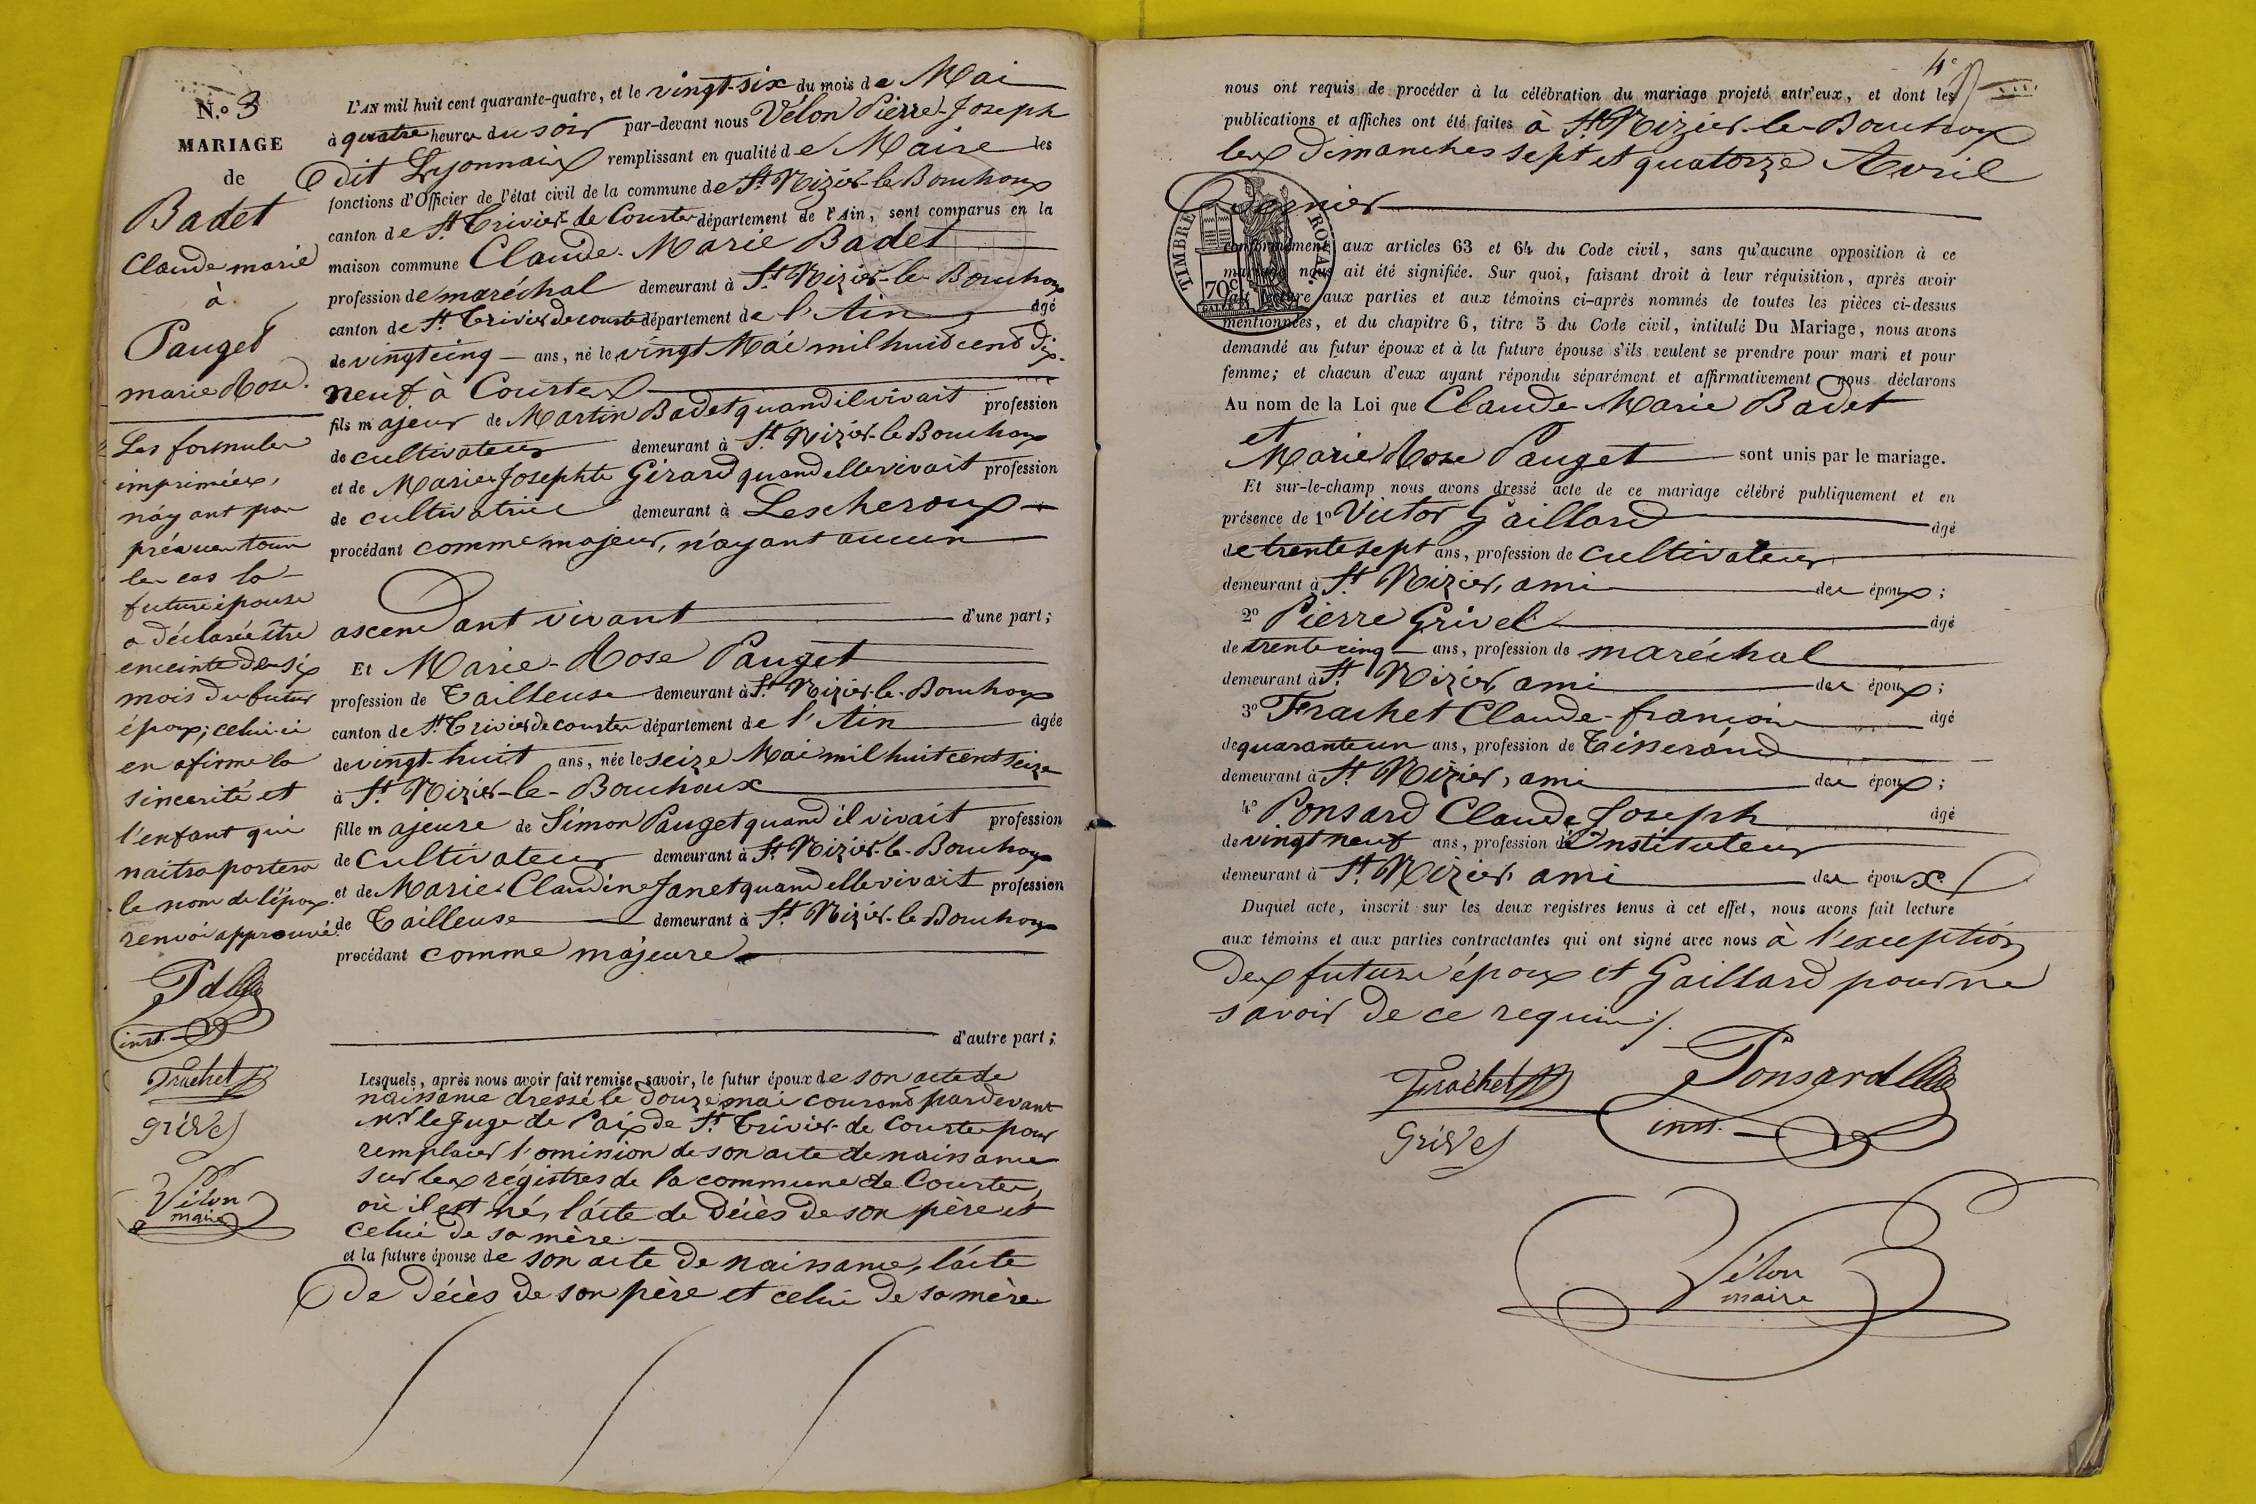 N.o 3
MARIAGE
de
Badet
Claude marie
à
Pauget
marie Rose.
Les formules
imprimées,
n'ayant pas
prévu tous
les cas la
future épouse
a déclarée être
enceinte de six
mois du futur
époux; celui-ci
en afirme la
sincerité et
l'enfant qui
naitra portera
le nom de l'époux.
renvoi approuvé.
inst.
Frachet
Grivel
Vélon
maire
L'AN mil huit cent quarante-quatre, et le vingt-six du mois de Mai
à quatre heures du soir par-devant nous Vélon Pierre-Joseph
dit Lyonnais remplissant en qualité de Maire les
fonctions d'Officier de l'état civil de la commune de St Nizier-le-Bouchoux
canton de St Trivier-de Courtes département de l'Ain, sont comparus en la
maison commune Claude-Marie Badet
profession de maréchal demeurant à St Nizier-le-Bouchoux
canton de St Trivier de courtes département de l'Ain âgé
de vingt cinq ans, né le vingt Mai mil huit cent dix-
neuf à Courtes
fils majeur de Martin Badet quand il vivait profession
de cultivateur demeurant à St Nizier-le-Bouchoux
et de Marie Josephte Girard quand elle vivait profession
de cultivatrice demeurant à Lescheroux
procédant comme majeur, n'ayant aucun
ascendant vivant d'une part;
Et Marie-Rose Pauget
profession de Tailleuse demeurant à St Nizier-le-Bouchoux
canton de St Trivier de courtes département de l'Ain âgée
de vingt-huit ans, née le seize Mai mil huit cent seize
à St Nizier-le-Bouchoux
fille majeure de Simon Pauget quand il vivait profession
de Cultivateur demeurant à St Nizier-le-Bouchoux
et de Marie-Claudine Janet quand elle vivait profession
de Tailleuse demeurant à St Nizier-le Bouchoux
procédant comme majeure
d'autre part;
Lesquels, après nous avoir fait remise, savoir, le futur époux de son acte de
naissance dressé le douze mai courant pardevant
Mr le Juge de Paix de St Trivier-de Courtes pour
remplacer l'omission de son acte de naissance
sur les régistres de la commune de Courtes,
où il est né, l'acte de décès de son père et
celui de sa mère.
et la future épouse de son acte de naissance, l'acte
de décès de son père et celui de sa mère
4e
nous ont requis de procéder à la célébration du mariage projeté entr'eux, et dont les
publications et affiches ont été faites à St Nizier-le-Bouchoux
les dimanches sept et quatorze Avril
dernier
TIMBRE ROYAL
70c
conformément aux articles 63 et 64 du Code civil, sans qu'aucune opposition à ce
mariage nous ait été signifiée. Sur quoi, faisant droit à leur réquisition, après avoir
fait lecture aux parties et aux témoins ci-après nommés de toutes les pièces ci-dessus
mentionnées, et du chapitre 6, titre 5 du Code civil, intitulé Du Mariage, nous avons
demandé au futur époux et à la future épouse s'ils veulent se prendre pour mari et pour
femme; et chacun d'eux ayant répondu séparément et affirmativement nous déclarons
Au nom de la Loi que Claude-Marie Badet
et
Marie Rose Pauget sont unis par le mariage.
Et sur-le-champ nous avons dressé acte de ce mariage célébré publiquement et en
présence de 1o Victor Gaillard âgé
de trente sept ans, profession de cultivateur
demeurant à St Nizier, ami des époux;
2o Pierre Grivel âgé
de trente cinq ans, profession de maréchal
demeurant à St Nizier, ami des époux;
3o Frachet Claude-françois âgé
de quarante un ans, profession de Tisserand
demeurant à St Nizier, ami des époux;
4o Ponsard Claude Joseph âgé
de vingt neuf ans, profession d'Instituteur
demeurant à St Nizier, ami des époux.
Duquel acte, inscrit sur les deux registres tenus à cet effet, nous avons fait lecture
aux témoins et aux parties contractantes qui ont signé avec nous à l'exception
des futurs époux et Gaillard pour ne
savoir de ce requis ./.
Frachet
Ponsard
inst.
Grivel
Vélon
maire